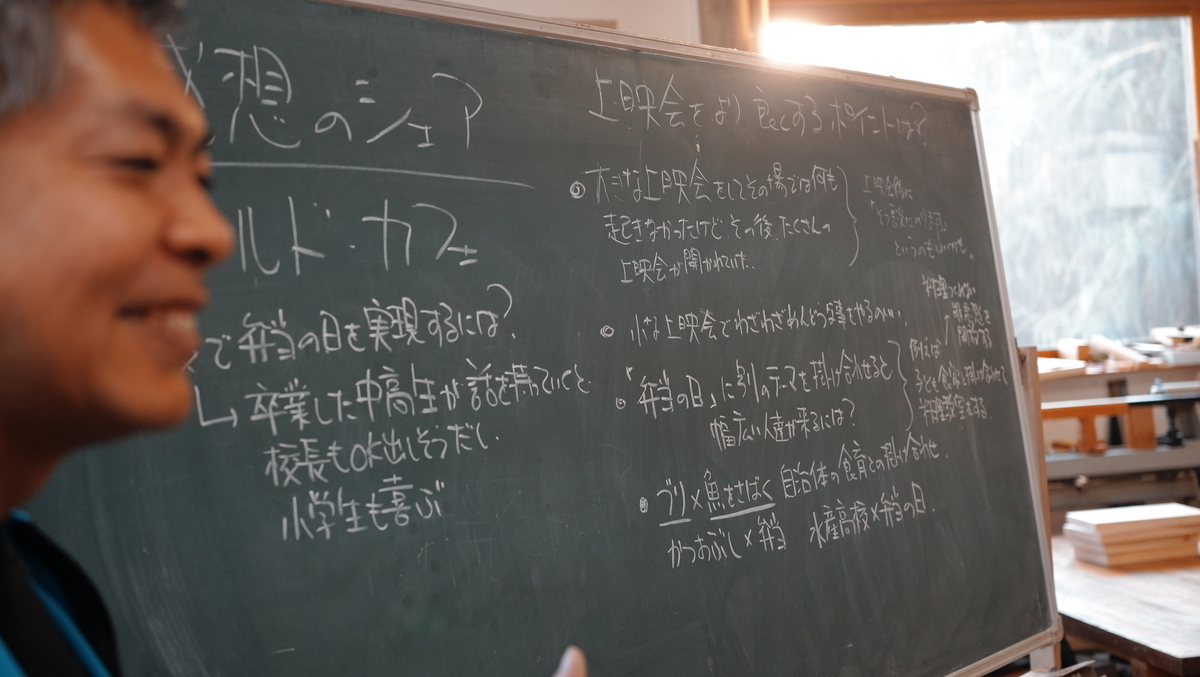 想のシェア
ルド・カフェ
で弁当の日を実現するには?
↳卒業した中高生が話を持っていくと
校長もOK出しそうだし
小学生も喜ぶ
上映会をより良くするポイントは?
大きな上映会をしてその場では何も
起きなかったけど その後、たくさんの
上映会が開かれていた。
小な上映会でわざわざめんどうな事をやるのがいい。
「弁当の日」に別のテーマを掛け合せると
幅広い人達が来るには?
例えば
子ども食堂と掛け合わせて
料理教室をする
ブリ×魚をさばく 自治体の食育との掛け合わせ
かつおぶし×弁当 水産高校×弁当の日